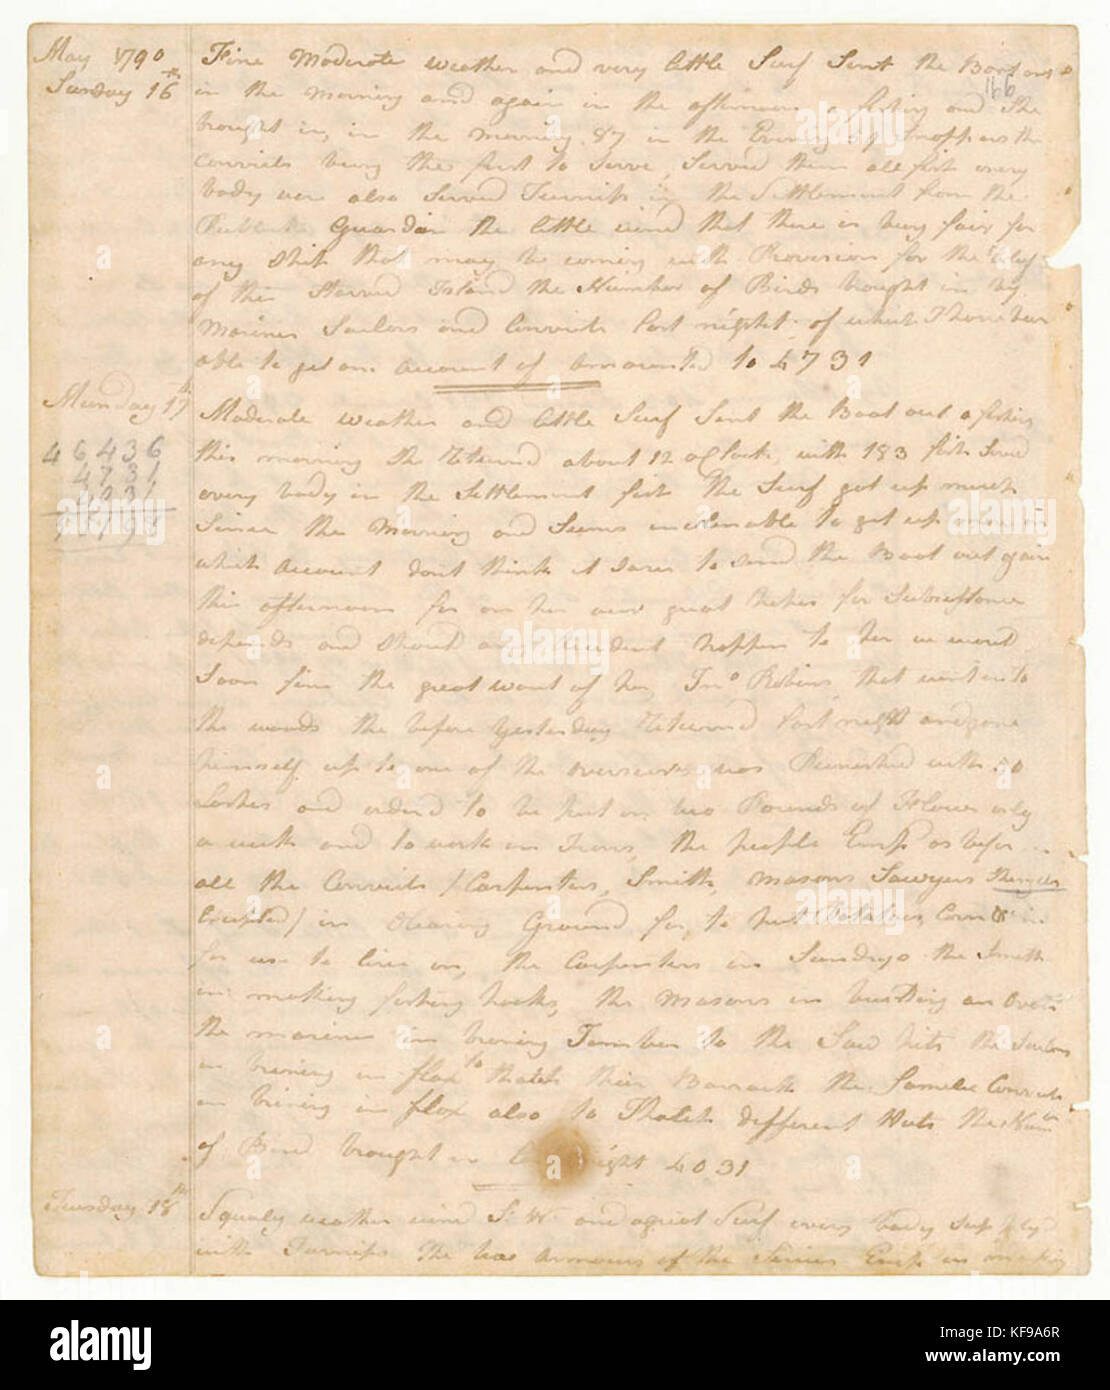 May 1790
Sunday 16th
Fine Moderate weather and very little Surf Sent the Boat out a
166
in the morning and again in the afternoon a fishing and She
brought in, in the morning 87 in the Evening Snappers the
Convicts being the first to Serve, Served them all fish every
body were also Served Turnips in the Settlement from the
Publick Guardin the little wind that there is bery fair for
any Ship that may be coming with Provision for the relief
of this Starved Island the Number of Birds brought in by
Marines Sailors and Convicts last night of which I have been
able to get an account of amounted to 4731
Munday 17th
46436
4731
4031
Moderate weather and little Surf Sent the Boat out a fishing
this morning the Returnd about 12 oClock, with 183 fish Served
every body in the Settlement fish the Surf got up much
Since the Morning and Seems inclenable to get up more on
which account dont think it Safe to Send the Boat out again
this afternoon for on her our great hopes for Subsistance
depends and Should any Accident happen to her we would
Soon find the great want of her, Jno Robins that went into
the woods the before yesterday Returnd last night and gave
himself up to one of the overseers was Punished with 50
Lashes and orderd to be put on two Pounds of Flower only
a week and to work in Irons, the people Emp as before
all the Convicts (Carpenters, Smith, Masons Sawyers
Excepted) in Clearing Ground for, to put Potatoes, Corn &c in
for us to live on, the Carpenters on Sundrys the Smith
in making fishing hooks, the Masons in building an Oven
the marines in brining Timber to the Saw pits the Sailors
in brining in flax to thatch their Barrack the Famele Convicts
in brining in flax also to Thatch different Huts the Num
of Bird brought in last night 4031
Tuesday 18th
Squaly weather wind S.W. and a great Surf every body Supplyd
with Turnips the two Armours of the Sirius Emp in making
alamy
Image ID: KF9A6R
www.alamy.com